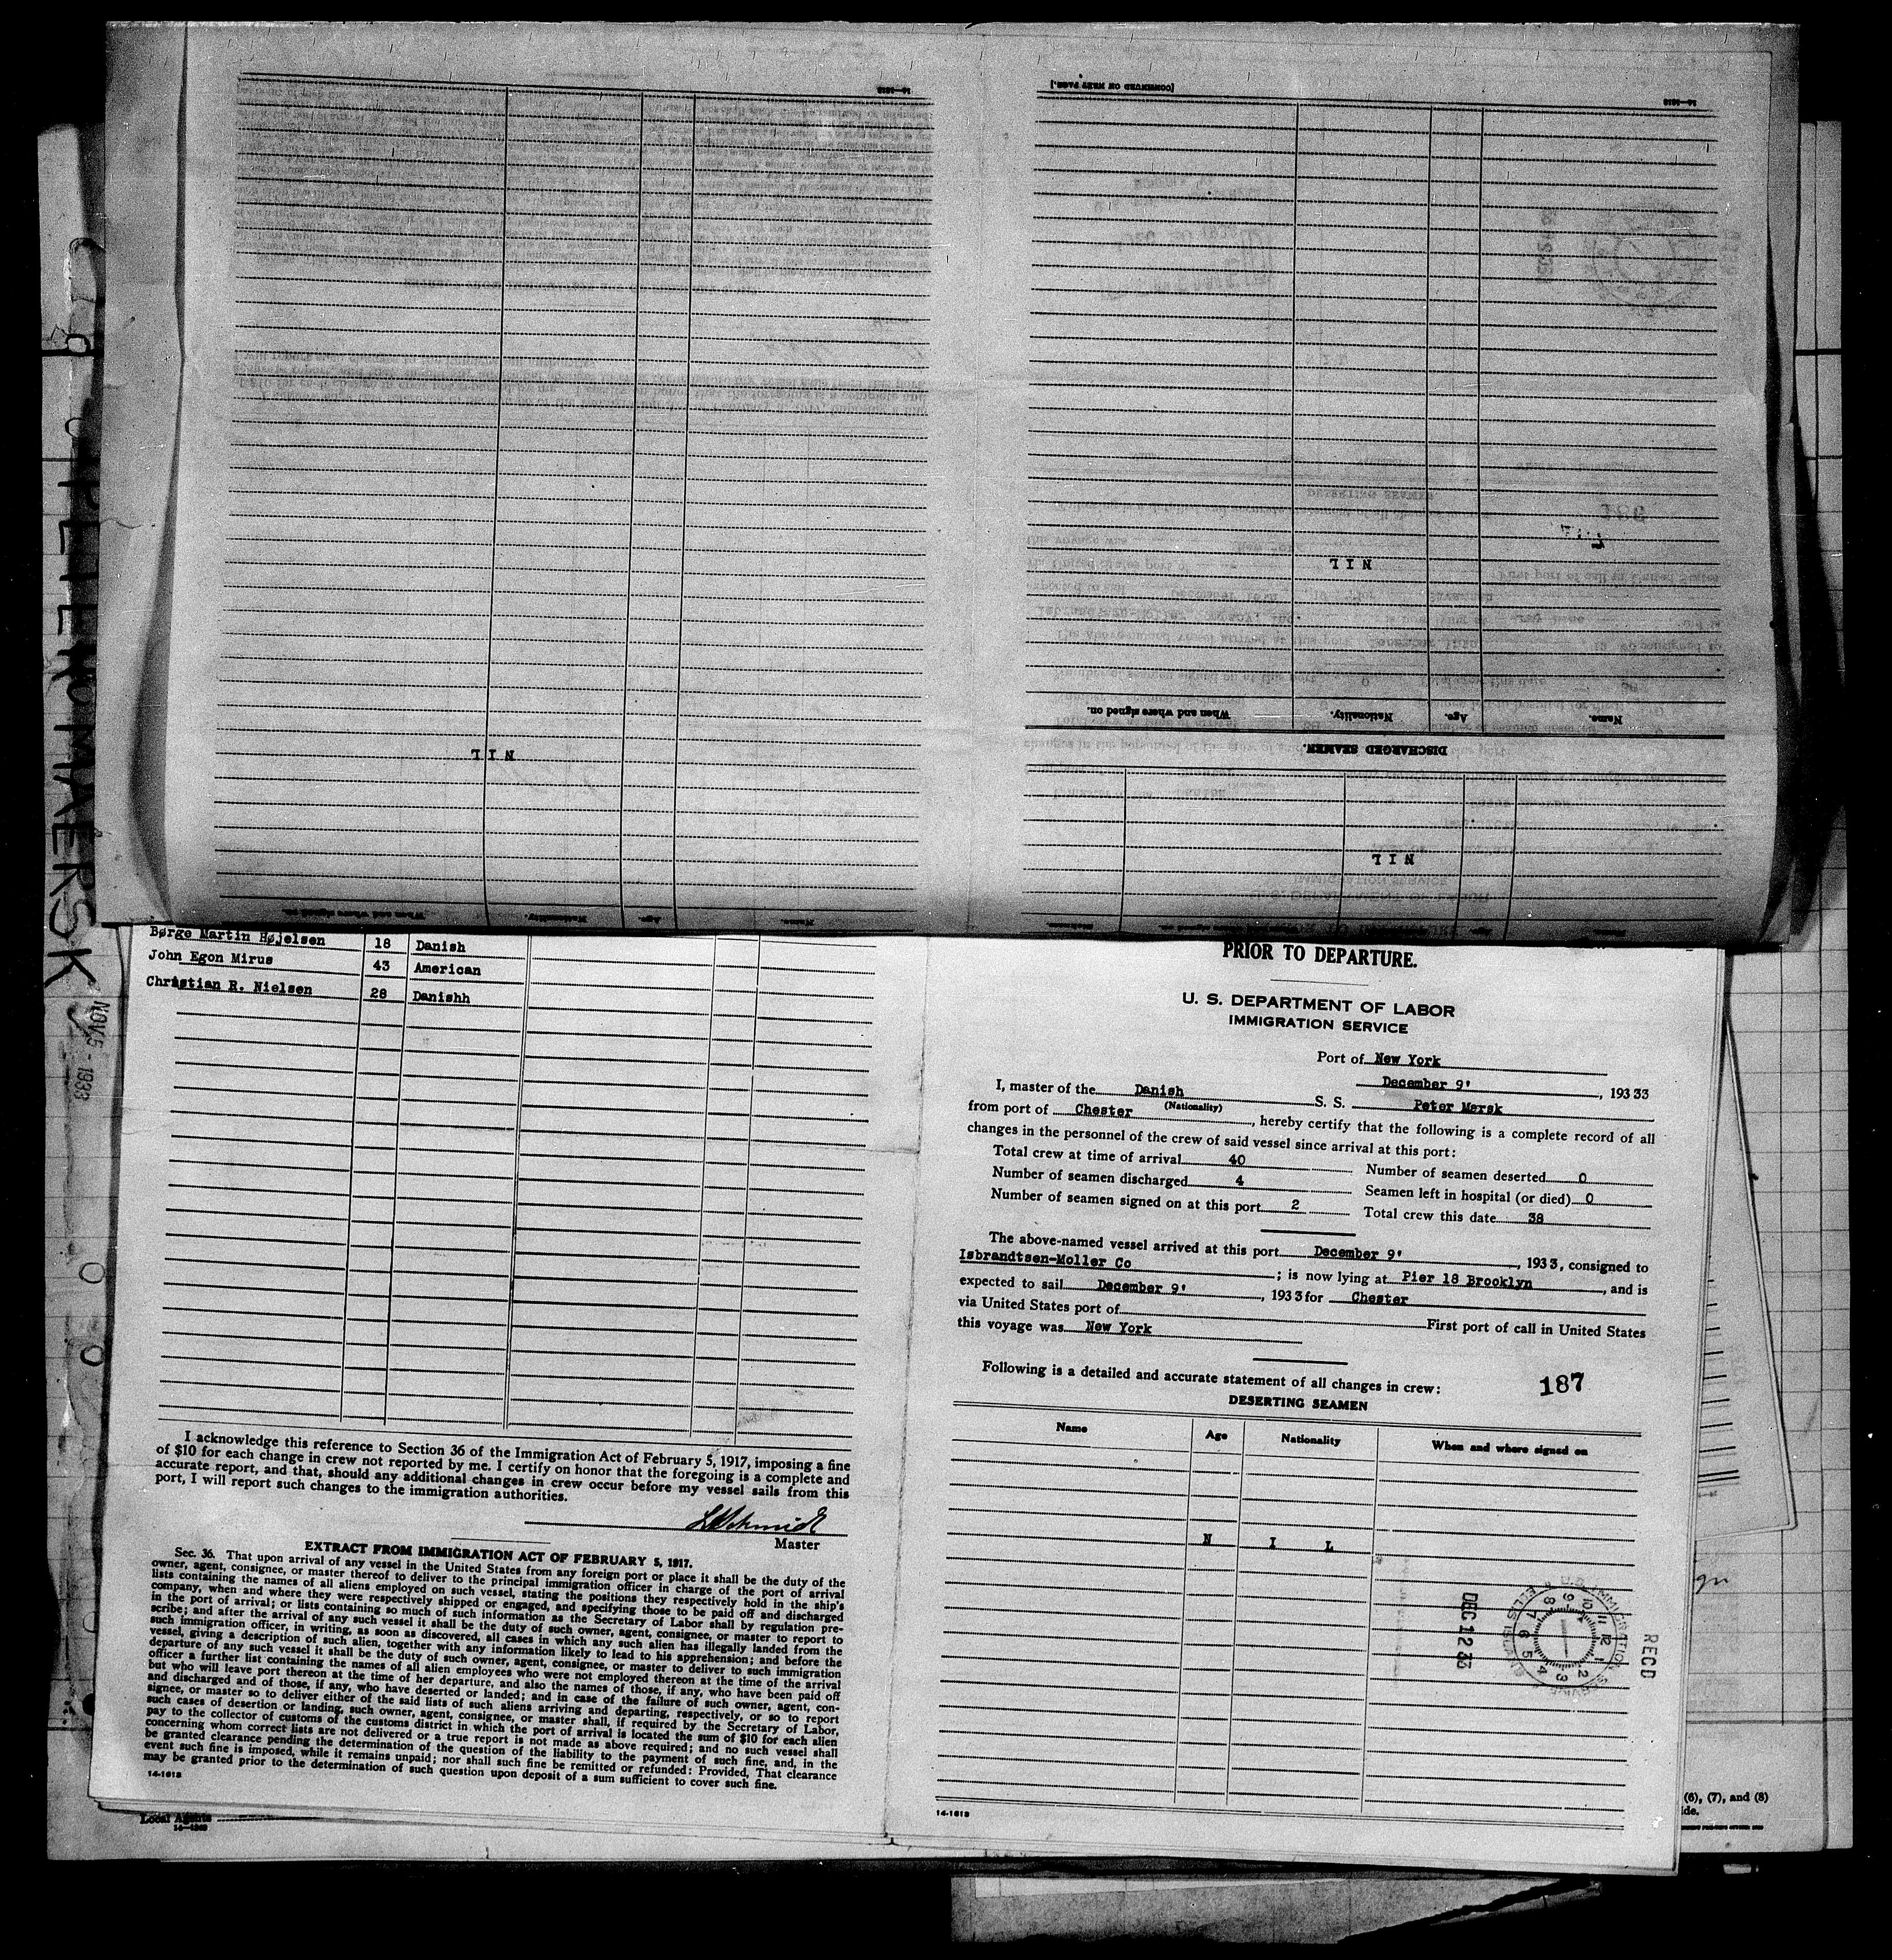 [CONTINUED ON NEXT PAGE.]
14—1618
14—1618
NIL
When and where signed on.
Nationality.
Age.
Name.
DISCHARGED SEAMEN.
NIL
NIL
When and where signed on.
Nationality.
Age.
Name.
PETER MAERSK
NOV 5 - 1933
Børge Martin Højelsen 18 Danish
John Egon Mirus 43 American
Christian R. Nielsen 28 Danishh
I acknowledge this reference to Section 36 of the Immigration Act of February 5, 1917, imposing a fine
of $10 for each change in crew not reported by me. I certify on honor that the foregoing is a complete and
accurate report, and that, should any additional changes in crew occur before my vessel sails from this
port, I will report such changes to the immigration authorities.
Schmidt
Master
EXTRACT FROM IMMIGRATION ACT OF FEBRUARY 5, 1917.
Sec. 36. That upon arrival of any vessel in the United States from any foreign port or place it shall be the duty of the
owner, agent, consignee, or master thereof to deliver to the principal immigration officer in charge of the port of arrival
lists containing the names of all aliens employed on such vessel, stating the positions they respectively hold in the ship's
company, when and where they were respectively shipped or engaged, and specifying those to be paid off and discharged
in the port of arrival; or lists containing so much of such information as the Secretary of Labor shall by regulation pre-
scribe; and after the arrival of any such vessel it shall be the duty of such owner, agent, consignee, or master to report to
such immigration officer, in writing, as soon as discovered, all cases in which any such alien has illegally landed from the
vessel, giving a description of such alien, together with any information likely to lead to his apprehension; and before the
departure of any such vessel it shall be the duty of such owner, agent, consignee, or master to deliver to such immigration
officer a further list containing the names of all alien employees who were not employed thereon at the time of the arrival
but who will leave port thereon at the time of her departure, and also the names of those, if any, who have been paid off
and discharged and of those, if any, who have deserted or landed; and in case of the failure of such owner, agent, con-
signee, or master so to deliver either of the said lists of such aliens arriving and departing, respectively, or so to report
such cases of desertion or landing, such owner, agent, consignee, or master shall, if required by the Secretary of Labor,
pay to the collector of customs of the customs district in which the port of arrival is located the sum of $10 for each alien
concerning whom correct lists are not delivered or a true report is not made as above required; and no such vessel shall
be granted clearance pending the determination of the question of the liability to the payment of such fine, and, in the
event such fine is imposed, while it remains unpaid; nor shall such fine be remitted or refunded: Provided, That clearance
may be granted prior to the determination of such question upon deposit of a sum sufficient to cover such fine.
14-1618
Local Agents
PRIOR TO DEPARTURE.
U. S. DEPARTMENT OF LABOR
IMMIGRATION SERVICE
Port of New York
December 9', 1933
I, master of the Danish S. S. Peter Mersk
(Nationality)
from port of Chester, hereby certify that the following is a complete record of all
changes in the personnel of the crew of said vessel since arrival at this port:
Total crew at time of arrival 40 Number of seamen deserted 0
Number of seamen discharged 4 Seamen left in hospital (or died) 0
Number of seamen signed on at this port 2 Total crew this date 38
The above-named vessel arrived at this port December 9', 1933, consigned to
Isbrandtsen-Moller Co; is now lying at Pier 18 Brooklyn, and is
expected to sail December 9', 1933 for Chester
via United States port of First port of call in United States
this voyage was New York
Following is a detailed and accurate statement of all changes in crew:
187
DESERTING SEAMEN
Name Age Nationality When and where signed on
N I L
REC'D
U. S. IMMIGRATION SERVICE ELLIS ISLAND
DEC 12 33
14-1618
(6), (7), and (8)
ide.